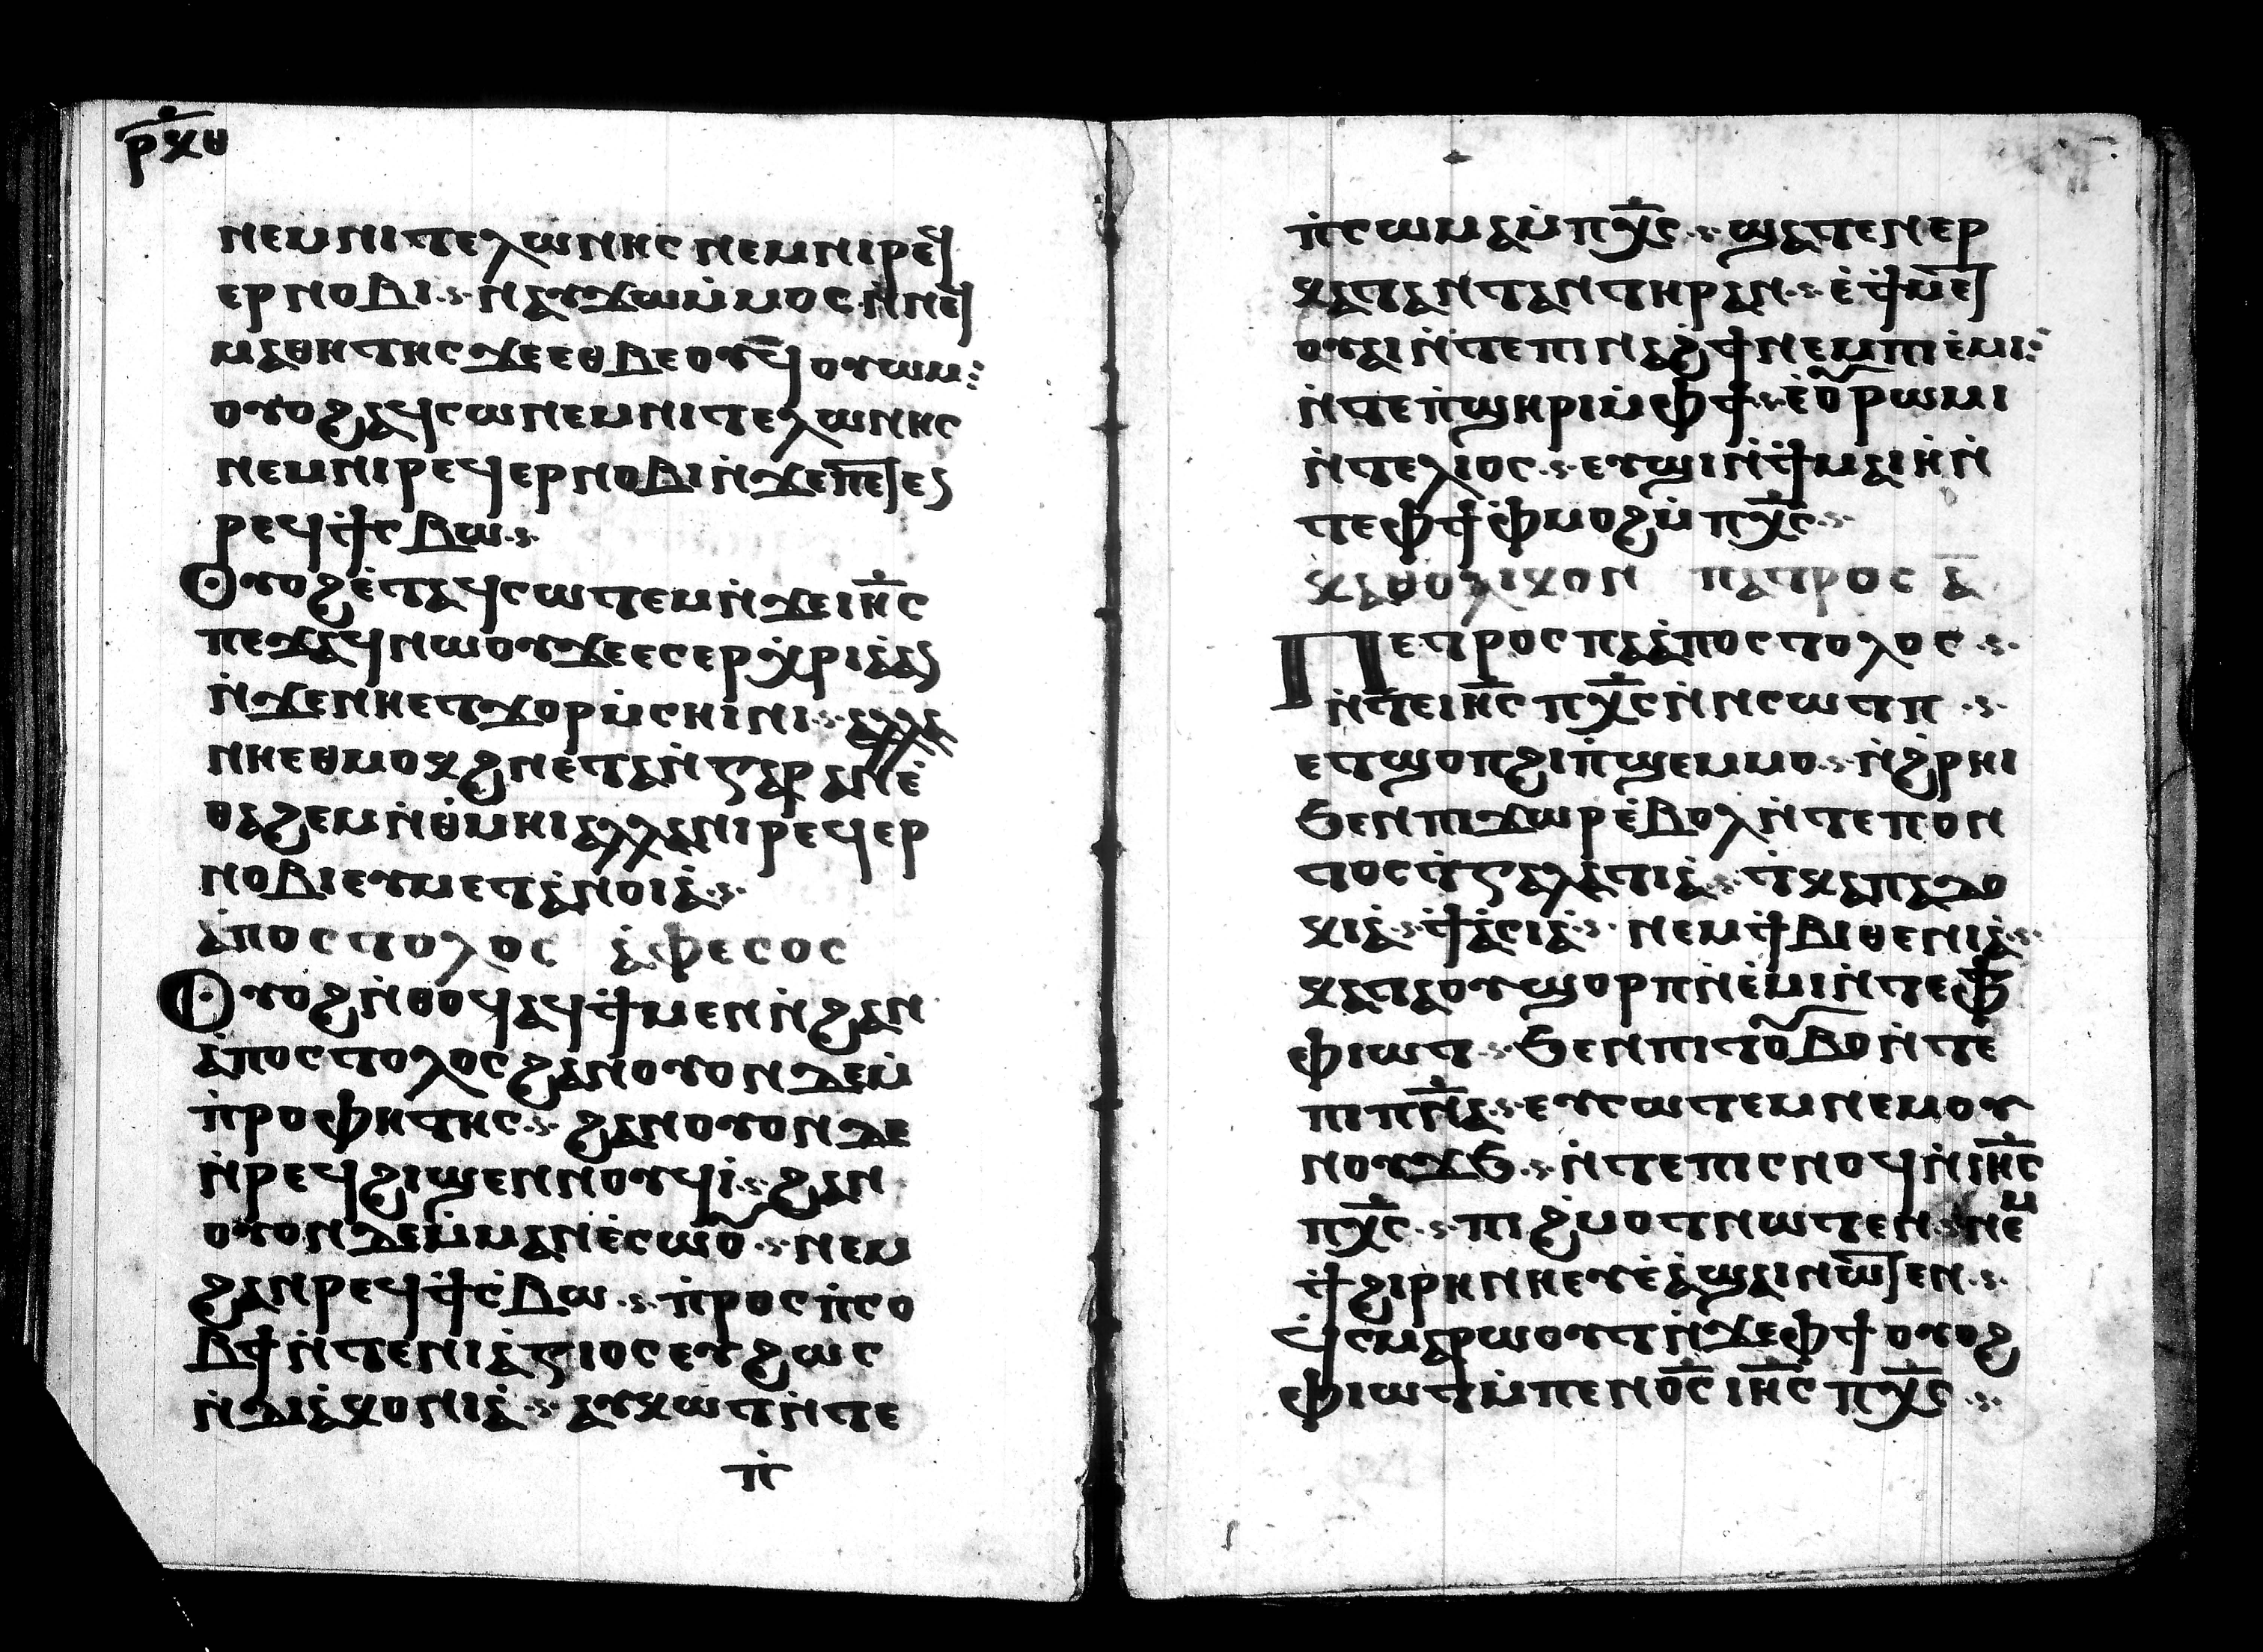 ⲣ̅ⲝ̅ⲑ̅
ⲛⲉⲙⲛⲓⲧⲉⲗⲱⲛⲏⲥ ⲛⲉⲙⲛⲓⲣⲉϥ
ⲉⲣⲛⲟⲃⲓ·ⲛⲁⲩϫⲱⲙ̇ⲙⲟⲥ ⲛ̇ⲛⲉϥ
ⲙⲁⲑⲏⲧⲏⲥ ϫⲉⲉⲑⲃⲉⲟⲩ ϥⲟⲩⲱⲙ:
ⲟⲩⲟϩⲁϥⲥⲱⲛⲉⲙⲛⲓⲧⲉⲗⲱⲛⲏⲥ
ⲛⲉⲙⲛⲓⲣⲉϥⲉⲣⲛⲟⲃⲓⲛ̇ϫⲉⲡⲉϯⲉⲛ
ⲣⲉϥϯⲥⲃⲱ·
Ⲟⲩⲟϩⲉ̇ⲧⲁϥⲥⲱⲧⲉⲙⲛ̇ϫⲉⲓⲏ̅ⲥ
ⲡⲉϫⲁϥⲛⲱⲟⲩϫⲉⲉⲥⲉⲣⲭ̇ⲣⲓⲁⲁⲛ
ⲛ̇ϫⲉⲛⲏⲉⲧϫⲟⲣⲙ̇ⲥⲏⲓⲛⲓ· ⲁⲗⲗⲁ
ⲛⲏⲉⲑⲙⲟⲕϩⲛⲉⲧⲁⲛ̇ⲅⲁⲣ ⲁⲛⲉ̇
ⲑⲁϩⲉⲙⲛ̇ⲑ̇ⲙⲏⲓⲁⲗⲗⲁⲛⲓⲣⲉϥⲉⲣ
ⲛⲟⲃⲓⲉⲩⲙⲉⲧⲁⲛⲟⲓⲁ̇·
ⲁ̇ⲡⲟⲥⲧⲟⲗⲟⲥ ⲁ̇ⲫⲉⲥⲟⲥ
Ⲟⲩⲟϩⲛ̇ⲑⲟϥⲁϥϯⲙⲉⲛⲛ̇ϩⲁⲛ
ⲁ̇ⲡⲟⲥⲧⲟⲗⲟⲥϩⲁⲛⲟⲩⲟⲛⲇⲉⲙ̇
ⲡ̇ⲣⲟⲫⲏⲧⲏⲥ· ϩⲁⲛⲟⲩⲟⲛⲇⲉ
ⲛ̇ⲣⲉϥϩⲓϣⲉⲛⲛⲟⲩϥⲓ· ϩⲁⲛ
ⲟⲩⲟⲛⲇⲉⲙ̇ⲙⲁⲛⲉ̇ⲥⲱⲟⲩ· ⲛⲉⲙ
ϩⲁⲛⲣⲉϥϯⲥ̇ⲃⲱ· ⲡ̇ⲣⲟⲥⲡ̇ⲥⲟ
ⲃϯⲛ̇ⲧⲉⲛⲓⲁ̇ⲅⲓⲟⲥⲉⲩϩⲱⲥ
ⲛ̇ⲇⲓⲁ̇ⲕⲟⲛⲓⲁ̇· ⲁⲩⲕⲱⲧⲛ̇ⲧⲉ
ⲡ̇
ⲡ̇ⲥⲱⲙⲁⲙ̇ⲡⲭ̅ⲥ· ϣⲁⲧⲉⲛⲉⲣ
ⲕⲁⲧⲁⲛⲧⲁⲛⲧⲏⲣⲁⲛ· ⲉ̇ϯⲙⲉⲧ
ⲟⲩⲁⲓⲛ̇ⲧⲉⲡⲓⲛⲁϩϯⲛⲉⲙⲡⲓⲉ̇ⲙⲓ:
ⲛ̇ⲧⲉⲡ̇ϣⲏⲣⲓⲙ̇ⲫϯ·ⲉ̇ⲟⲩⲣⲱⲙⲓ
ⲛ̇ⲧⲉⲗⲓⲟⲥ· ⲉⲩϣⲓⲛ̇ϯⲙⲁⲓⲏⲛ̇
ⲧⲉⲫϯⲫ̇ⲙⲟϩⲙ̇ⲡⲭ̅ⲥ·
ⲕⲁⲑⲟⲗⲓⲕⲟⲛ ⲡⲁⲧⲣⲟⲥ ⲁ̅
Ⲡⲉⲧⲣⲟⲥⲡⲁⲁ̇ⲡⲟⲥⲧⲟⲗⲟⲥ·
ⲛ̇ⲧⲉⲓⲏ̅ⲥ ⲡⲭ̅ⲥⲛ̇ⲛⲥⲱⲧⲡ·
ⲉⲧϣⲟⲡϩⲓⲡ̇ϣⲉⲙⲙⲟ· ⲛ̇ϩ̇ⲣⲏⲓ
ϧⲉⲛⲡⲓϫⲱⲣⲉ̇ⲃⲟⲗⲛ̇ⲧⲉⲡⲟⲛ
ⲧⲟⲥⲧ̇ⲅⲁⲗⲁⲧⲓⲁ̇· ⲧ̇ⲕⲁⲡⲁⲇⲟ
ⲕⲓⲁ̇·ϯⲁ̇ⲥⲓⲁ̇· ⲛⲉⲙϯⲃⲓⲑⲉⲛⲓⲁ̇·
ⲕⲁⲧⲁⲟⲩϣⲟⲣⲡⲛ̇ⲉ̇ⲙⲓⲛ̇ⲧⲉⲫϯ
ⲫⲓⲱⲧ· ϧⲉⲛⲡⲓⲧⲟⲩⲃⲟⲛ̇ⲧⲉ
ⲡⲓⲡⲛ̅ⲁ·ⲉⲩⲥⲱⲧⲉⲙⲛⲉⲙⲟⲩ
ⲛⲟⲩϫϧ· ⲛ̇ⲧⲉⲡⲓⲥⲛⲟϥⲛ̇ⲓⲏ̅ⲥ
ⲡⲭ̅ⲥ· ⲡⲓϩⲙⲟⲧⲛⲱⲧⲉⲛ·ⲛⲉⲙ
ϯϩⲓⲣⲏⲛⲏⲉⲩⲉ̇ⲁ̇ϣⲁⲓⲛⲱⲧⲉⲛ·
ϥ̇ⲥⲙⲁⲣⲱⲟⲩⲧⲛ̇ϫⲉⲫϯⲟⲩⲟϩ
ⲫⲓⲱⲧⲙ̇ⲡⲉⲛⲟ̅ⲥ ⲓⲏ̅ⲥ ⲡⲭ̅ⲥ·